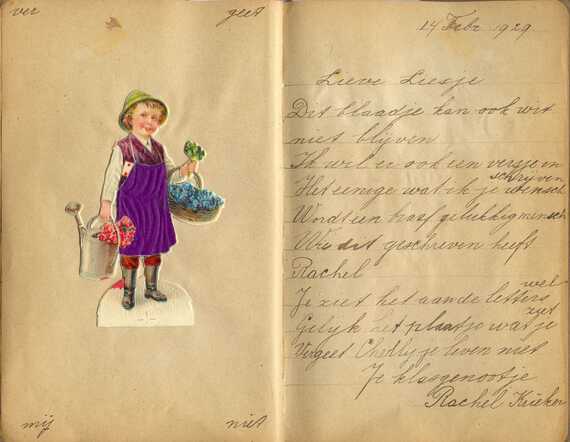 ver geet
mij niet
14 Febr 1929
Lieve Liesje
Dit blaadje kan ook wit
niet blijven
Ik wil er ook een versje in
schrijven
Het eenige wat ik je wensch
Wordt een braaf gelukkig mensch
Wie dit geschreven heeft
Rachel
Je ziet het aan de letters wel
Gelijk het plaatje wat je ziet
Vergeet Chelly je leven niet
Je klasgenootje
Rachel